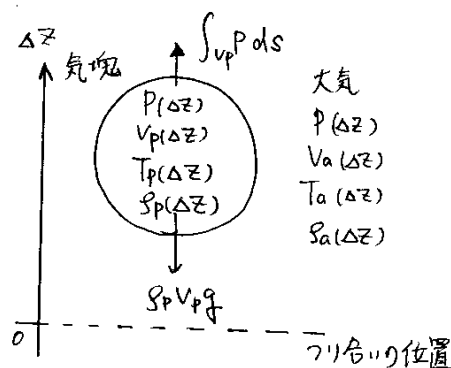 ΔZ
気塊
∫_{Vp} P ds
P(ΔZ)
Vp(ΔZ)
Tp(ΔZ)
ρp(ΔZ)
大気
P(ΔZ)
Va(ΔZ)
Ta(ΔZ)
ρa(ΔZ)
ρpVpg
0
つり合いの位置